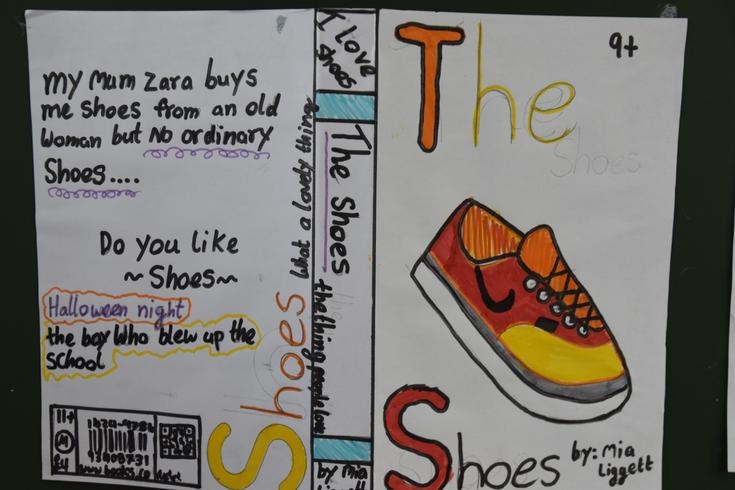 my Mum Zara buys
me shoes from an old
Woman but No ordinary
Shoes....
Do you like
~Shoes~
Halloween night
the boy Who blew up the
School
11+
M
£4
93408731
Shoes What a lovely thing
I love
shoes
The Shoes
the thing people love
by Mia
Liggett
The
9+
Shoes
Shoes
by: Mia
Liggett